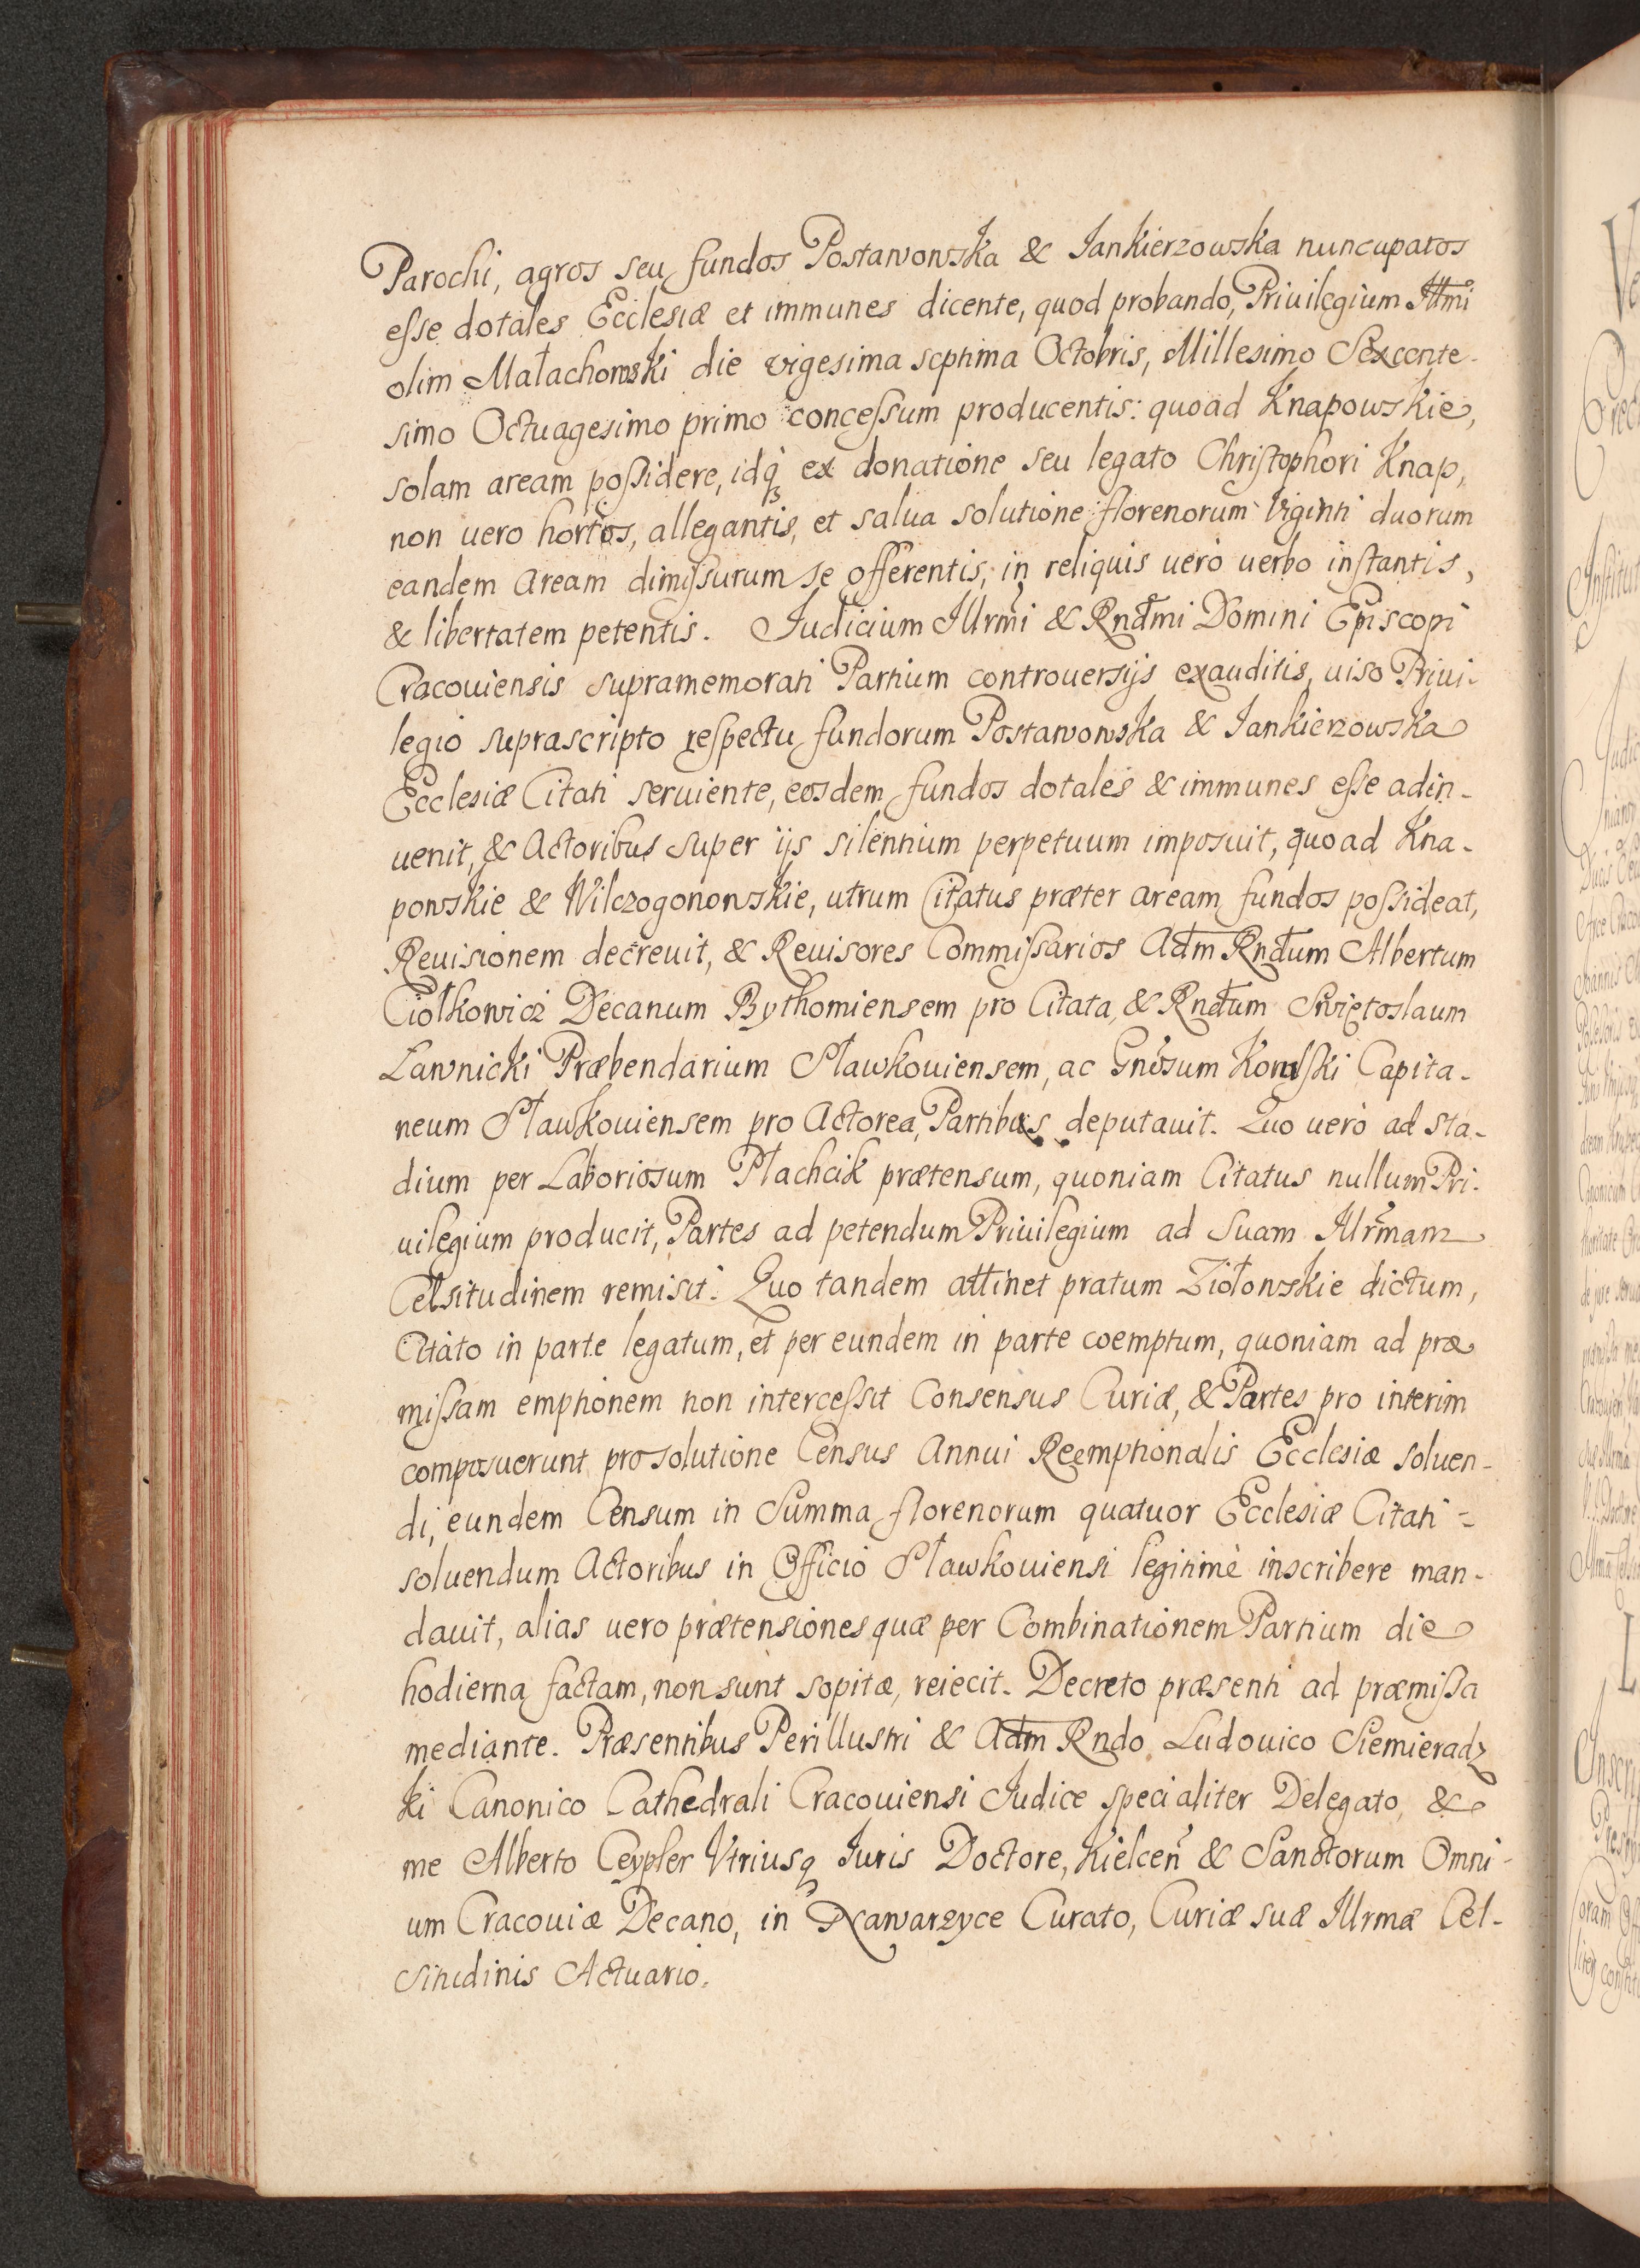 Parochi, agros seu fundos Postawowska & Iankierzowska nuncupatos
eſse dotales Ecclesiæ et immunes dicente, quod probando, Priuilegium Illmi
olim Małachowski die vigesima septima Octobris, Millesimo Sexcente-
simo Octuagesimo primo conceſsum producentis: quoad Knapowskie,
solam aream poſsidere, idq́ꝫ ex donatione seu legato Chriſtophori Knap,
non uero hortos, allegantis, et salua solutione florenorum Viginti duorum
eandem aream dimiſsurum se offerentis, in reliquis uero uerbo inſtantis,
& libertatem petentis. Iudicium Illrmi & Rndmi Domini Episcopi
Cracouiensis supramemorati Partium controuersijs exauditis, uiso Priui-
legio suprascripto reſpectu fundorum Postawowska & Iankierzowska
Ecclesiæ Citati seruiente, eosdem fundos dotales & immunes eſse adin-
uenit, & Actoribus super ijs silentium perpetuum imposuit, quoad Kna-
powskie & Wilczogonowskie, utrum Citatus præter aream fundos poſsideat,
Reuisionem decreuit, & Reuisores Commiſsarios Adm Rndum Albertum
Ciołkowicz Decanum Bythomiensem pro Citata, & Rndum Swiętoslaum
Lawnicki Præbendarium Sławkouiensem, ac Gnosum Konſki Capita-
neum Sławkouiensem pro Actorea, Partibus deputauit. Quo uerò ad sta-
dium per Laboriosum Płachcik prætensum, quoniam Citatus nullum Pri-
uilegium producit, Partes ad petendum Priuilegium ad Suam Illrmam
Celsitudinem remisit. Quo tandem attinet pratum Ziołowskie dictum,
Citato in parte legatum, et per eundem in parte coemptum, quoniam ad præ
miſsam emptionem non interceſsit Consensus Curiæ, & Partes pro interim
composuerunt pro solutione Census Annui Reemptionalis Ecclesiæ soluen-
di, eundem Censum in Summa florenorum quatuor Ecclesiæ Citati =
soluendum Actoribus in Officio Sławkouiensi legitimè inscribere man-
dauit, alias uero prætensiones quæ per Combinationem Partium die
hodierna factam, non sunt sopitæ, reiecit. Decreto præsenti ad præmiſsa
mediante. Præsentibus Perillustri & Adm Rndo Ludouico Siemieradz
ki Canonico Cathedrali Cracouiensi Iudice specialiter Delegato, &
me Alberto Ceypler Vtriusqꝫ Iuris Doctore, Kielcen̄ & Sanctorum Omni-
um Cracouiæ Decano, in Nawarzyce Curato, Curiæ suæ Illrmæ Cel-
situdinis Actuario.